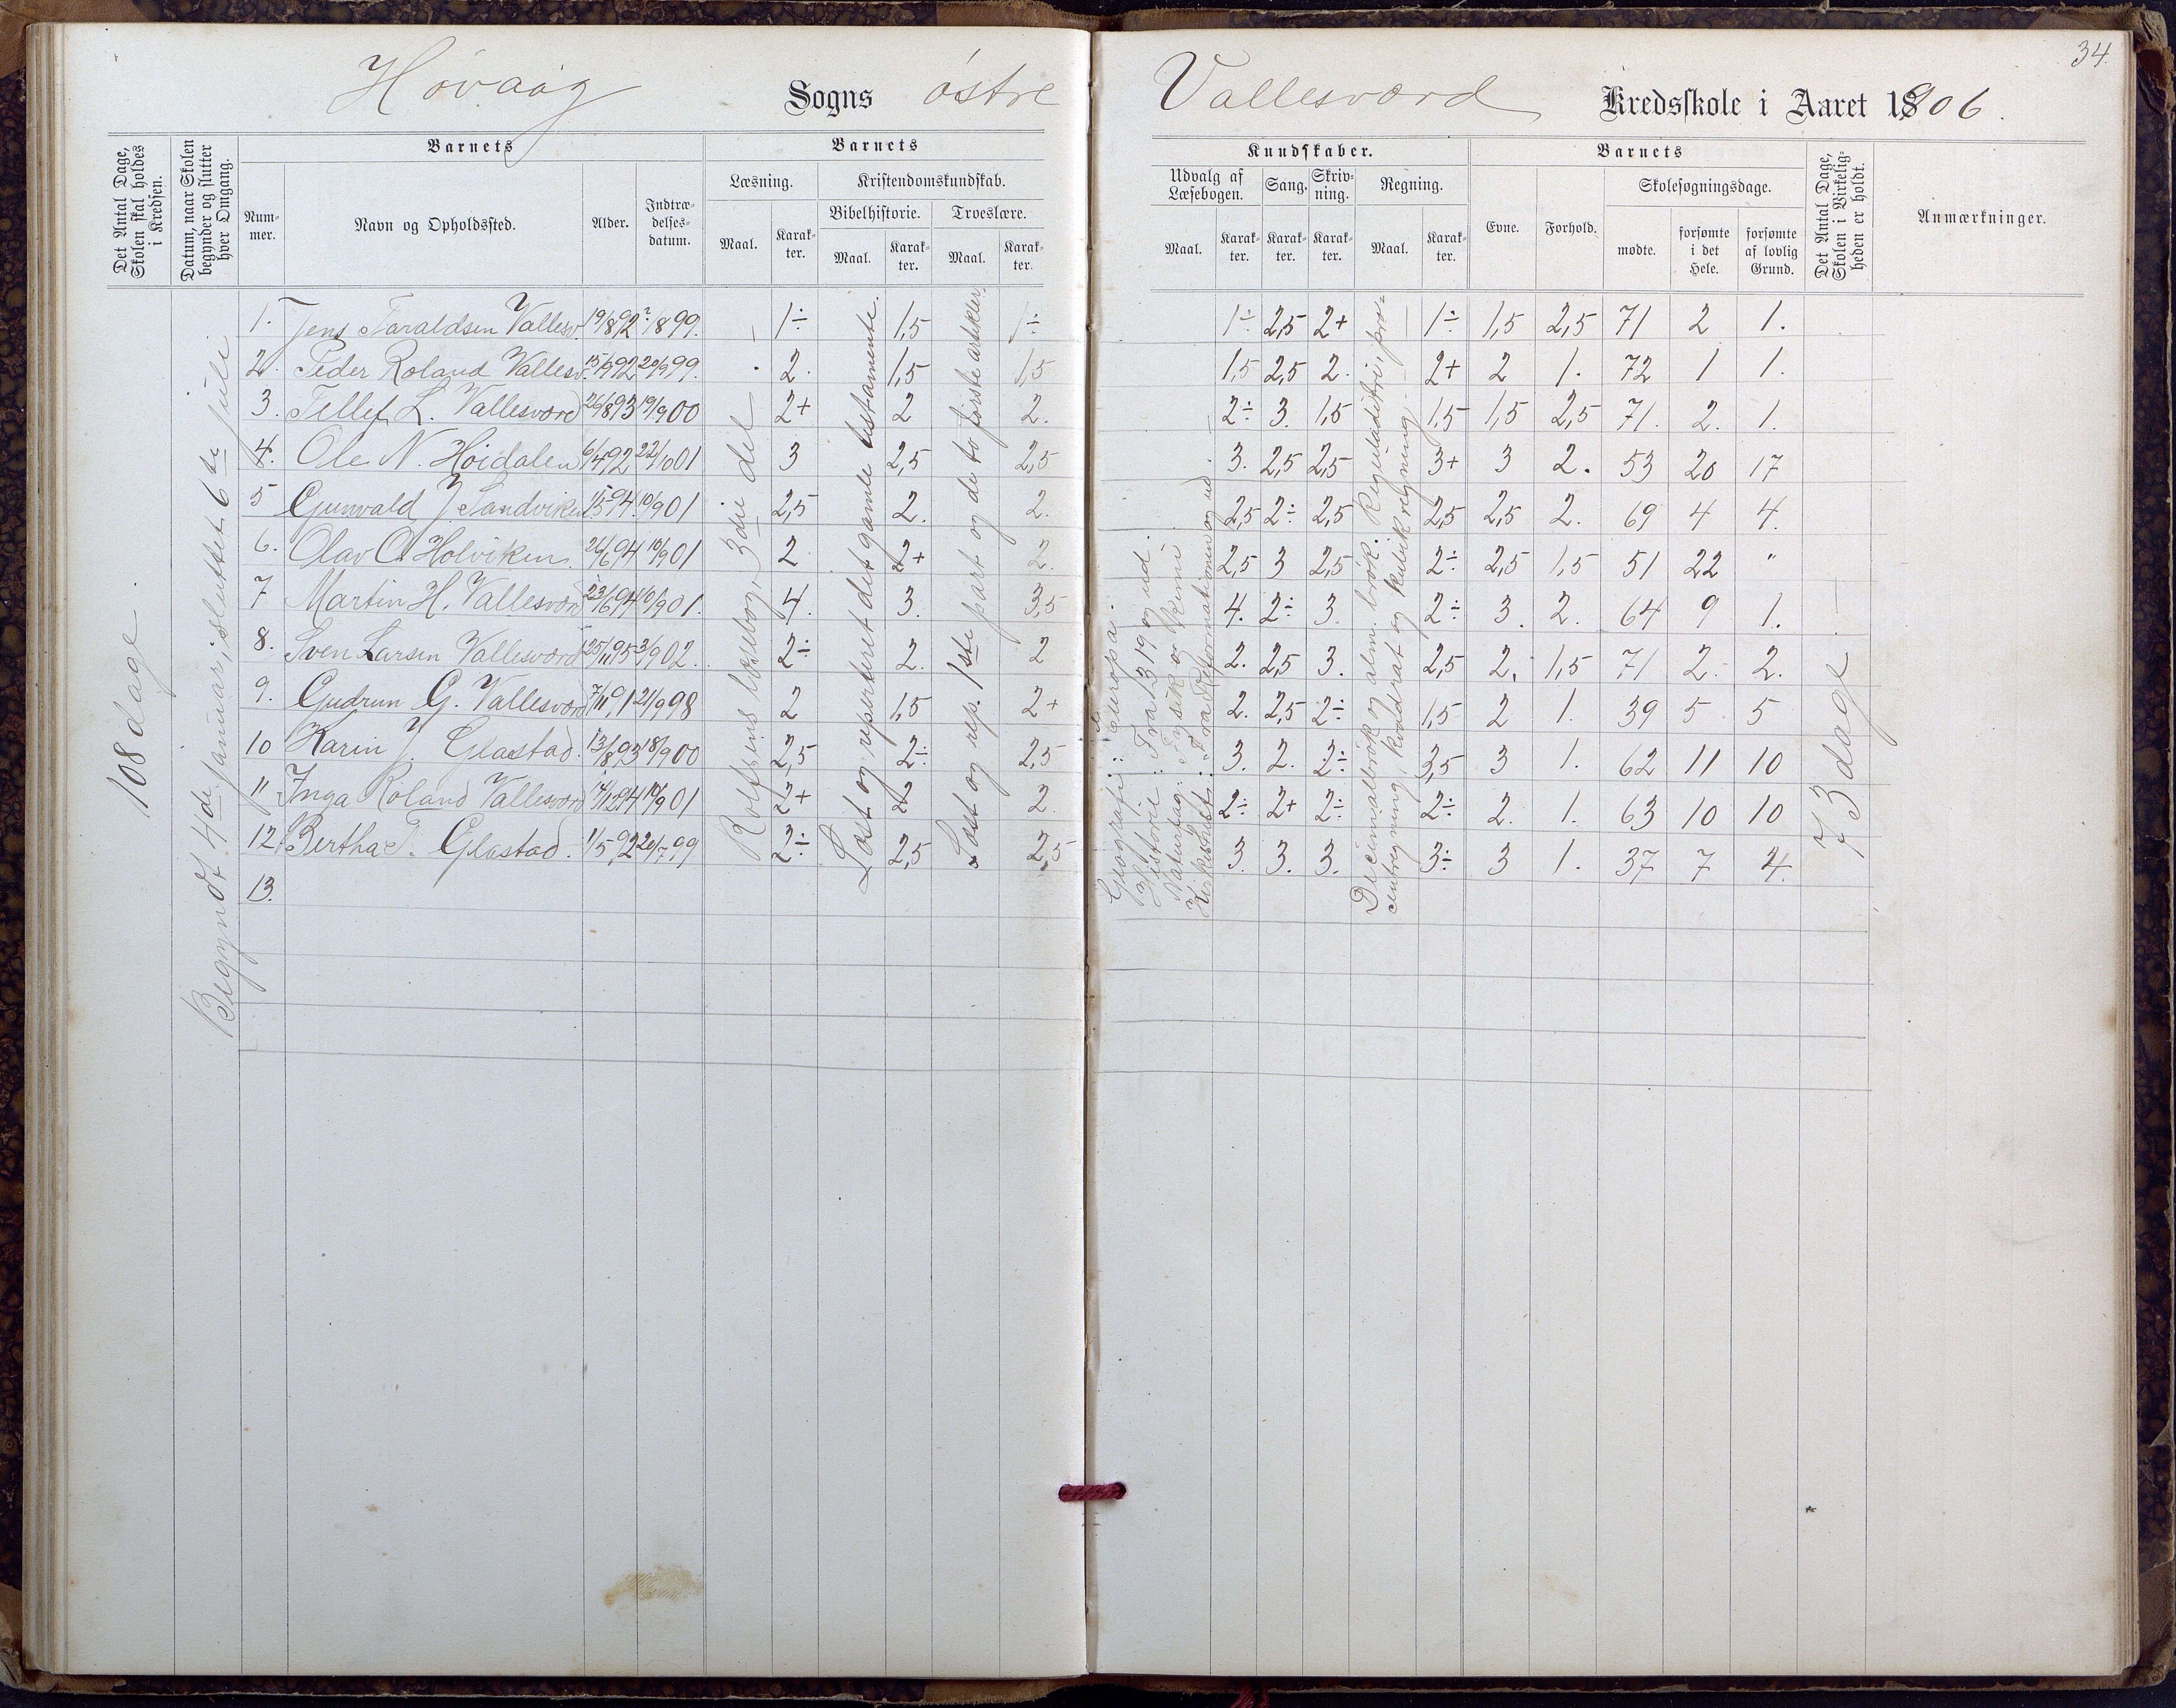 34.
Høvaag Sogns østre Vallesværd Kredsskole i Aaret 1906.
Det Antal Dage, Skolen skal holdes i Kredsen.
Datum, naar Skolen begynder og slutter hver Omgang.
Barnets
Nummer.
Navn og Opholdssted.
Alder.
Indtrædelsesdatum.
Barnets
Læsning.
Maal.
Karakter.
Kristendomskundskab.
Bibelhistorie.
Maal.
Karakter.
Troeslære.
Maal.
Karakter.
Kundskaber.
Udvalg af Læsebogen.
Maal.
Karakter.
Sang.
Karakter.
Skrivning.
Karakter.
Regning.
Maal.
Karakter.
Barnets
Evne.
Forhold.
Skolesøgningsdage.
mødte.
forsømte i det Hele.
forsømte af lovlig Grund.
Det Antal Dage, Skolen i Virkeligheden er holdt.
Anmærkninger.
108 dage.
Begyndt 4de januar, sluttet 6te juli
Rolfsens læsebog, 3die del
Læst og reperteret det gamle testamente.
Læst og rep. 1ste part og de to første artikler.
Geografi: Europa.
Historie: Fra 1319 og ud.
Naturfag: Fysik og kemi
Kirkehist.: Fra Reformationen og ud
Decimalbrøk og alm. brøk. Reguladetri, procentregning, kvadrat og kubikregning
73 dage
1. Jens Taraldsen Vallesv. 19/8 92 2/8 99. 1÷ 1,5 1÷ 1÷ 2,5 2+ 1÷ 1,5 2,5 71 2 1.
2. Peder Roland Vallesv. 15/9 92 20/9 99. 2. 1,5 1,5 1,5 2,5 2. 2+ 2 1. 72 1 1.
3. Tellef L. Vallesværd 26/8 93 19/9 00 2+ 2 2. 2÷ 3. 1,5 1,5 1,5 2,5 71. 2. 1.
4. Ole N. Høidalen 6/4 92 22/10 01 3 2,5 2,5 3. 2,5 2,5 3+ 3 2. 53 20 17
5 Gunvald J. Sandviken 1/5 94 10/9 01 2,5 2. 2. 2,5 2÷ 2,5 2,5 2,5 2. 69 4 4.
6. Olav C. Holviken. 24/6 94 10/9 01 2 2+ 2. 2,5 3 2,5 2÷ 2,5 1,5 51 22 "
7 Martin H. Vallesværd 23/6 94 10/9 01. 4. 3. 3,5 4. 2÷ 3. 2÷ 3. 2. 64 9 1.
8. Sven Larsen Vallesværd 25/11 95 3/9 02. 2÷ 2. 2 2. 2,5 3. 2,5 2. 1,5 71 2. 2.
9. Gudrun G. Vallesværd 7/11 91 21/9 98 2 1,5 2+ 2. 2,5 2÷ 1,5 2 1. 39 5 5
10 Karin J. Glastad. 13/8 93 18/9 00 2,5 2÷ 2,5 3. 2. 2÷ 3,5 3 1. 62 11 10
11 Inga Roland Vallesværd 14/12 94 10/9 01 2+ 2 2. 2÷ 2+ 2÷ 2÷ 2. 1. 63 10 10
12. Bertha T. Glastad. 1/5 92 20/7 99 2÷ 2,5 2,5 3. 3. 3. 3÷ 3 1. 37 7 4.
13.